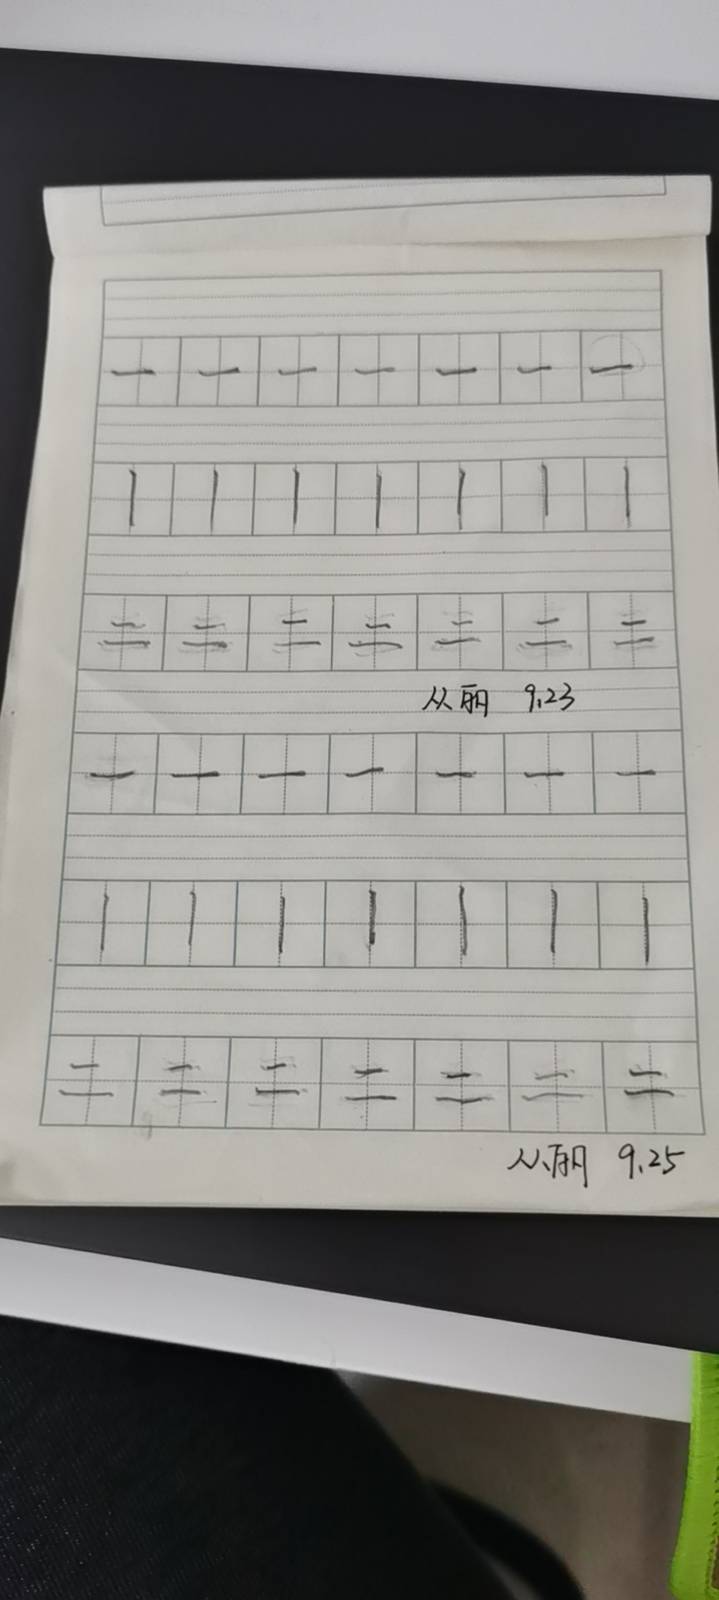 一 一 一 一 一 一 一
丨 丨 丨 丨 丨 丨 丨
二 二 二 二 二 二 二
从丽 9.23
一 一 一 一 一 一 一
丨 丨 丨 丨 丨 丨 丨
二 二 二 二 二 二 二
从丽 9.25